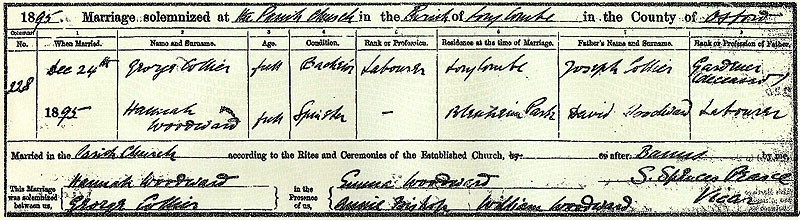 1895. Marriage solemnized at the Parish Church in the Parish of Long Combe in the County of Oxford
Columns:— 1 2 3 4 5 6 7 8
No. When Married. Name and Surname. Age. Condition. Rank or Profession. Residence at the time of Marriage. Father's Name and Surname. Rank or Profession of Father.
228 Dec 24th George Collier full Bachelor Labourer Long Combe Joseph Collier Gardener (deceased)
1895 Hannah Woodward full Spinster — Blenheim Park David Woodward Labourer
Married in the Parish Church according to the Rites and Ceremonies of the Established Church, by or after Banns by me,
This Marriage was solemnized between us, Hannah Woodward George Collier in the Presence of us, Emma Woodward Annie William Woodward S. Spencer Pearce Vicar